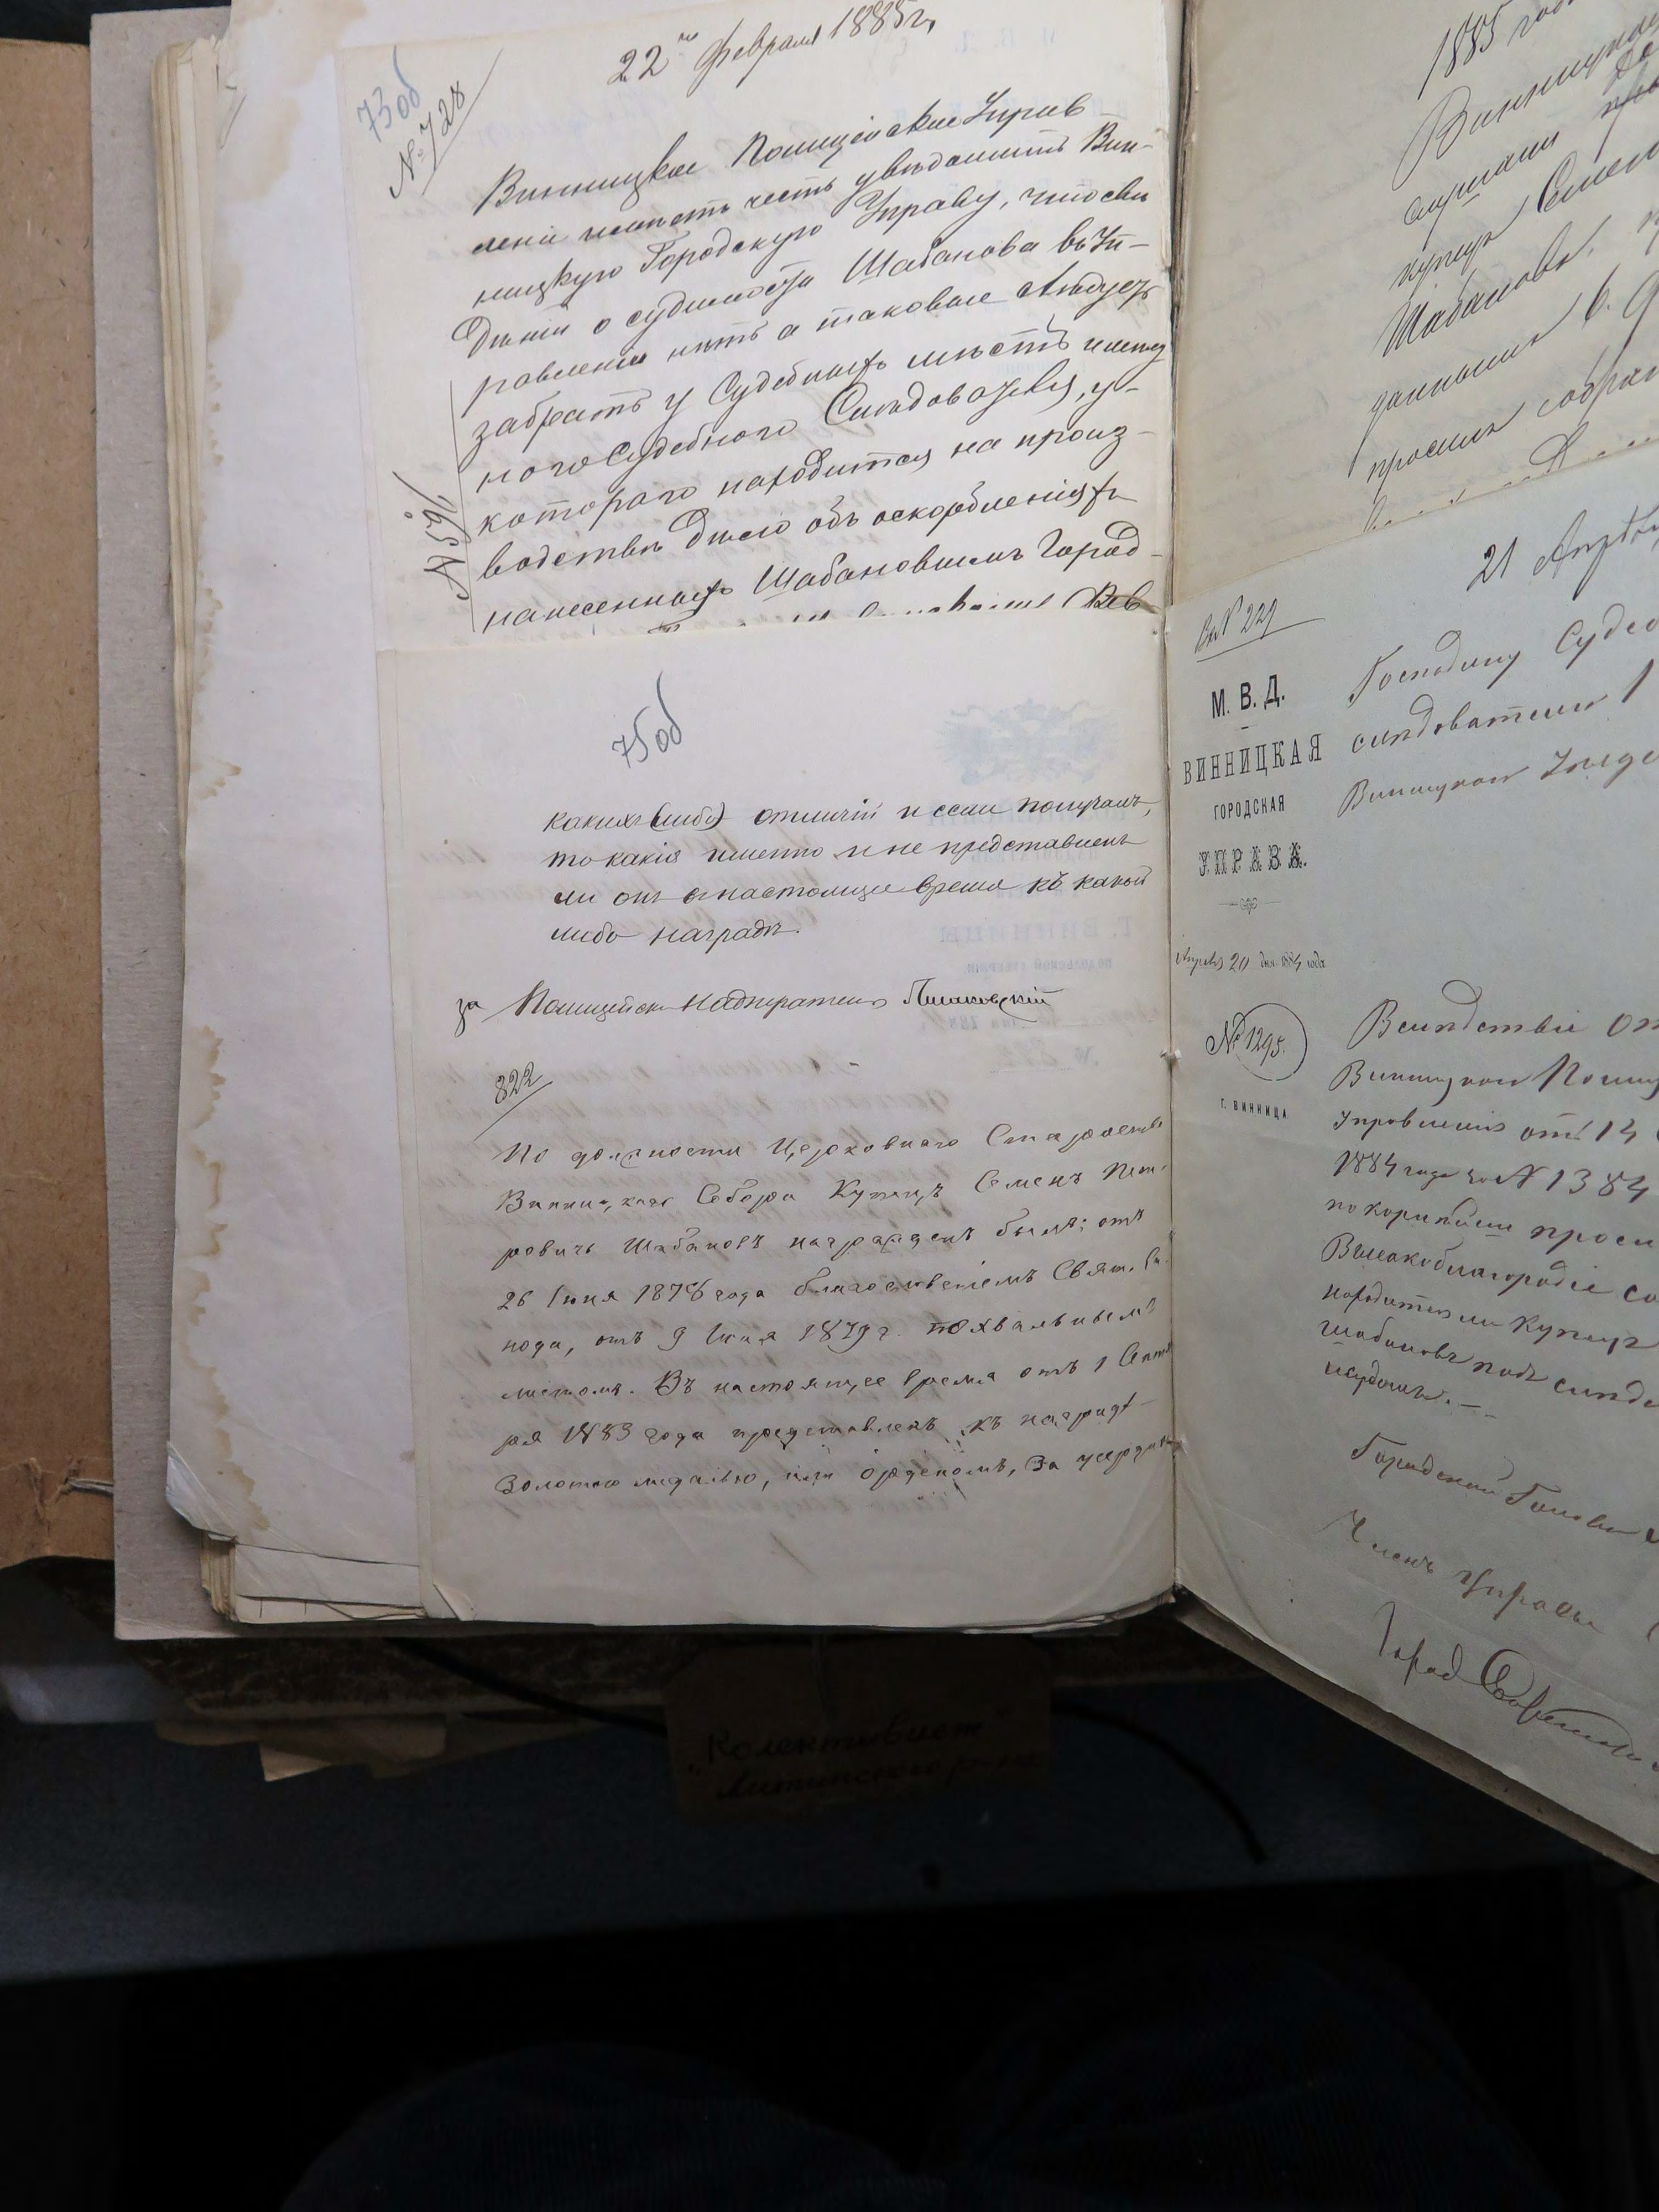 73об
№ 728
22го Февраля 1885 г.
Винницкое Полицейское Управ
леніе имѣетъ честь увѣдомить Вин-
ницкую Городскую Управу, что свѣ
дѣній о судимости Шабанова въ Уп-
равленіи нѣтъ а таковые слѣдуетъ
забрать у Судебныхъ мѣстъ
наго Судебного Слѣдователя, у-
котораго находится на произ-
водствѣ дѣло объ оскорбленіяхъ
нанесенныхъ Шабановымъ Город-
№ 591
75об
какихъ (либо) отличій и если получалъ,
то какія именно и не представленъ
ли онъ въ настоящее время къ какой
либо наградѣ.
за Полицейск Надзиратель
822
По должности Церковнаго Старосты
Винницкаго Собора Купецъ Семенъ Пет-
ровичъ Шабановъ награжденъ былъ: отъ
26 Іюня 1876 года благословеніемъ Свят. Си-
нода, отъ 9 Іюня 1879 г. похвальнымъ
листомъ. Въ настоящее время отъ 1 Сентяб
ря 1883 года представленъ къ наградѣ-
Золотою медалью, или орденомъ, за усердіе
1885 года
Винницкая
слушали
купца Семен
Шабанова.
данными
просили собран
21 Апрѣ
Вх № 229
М. В. Д.
ВИННИЦКАЯ
ГОРОДСКАЯ
УПРАВА.
Апрѣля 20 дня 1884 года
№ 1295.
Г. ВИННИЦА
Господину Судеб
слѣдователю 1
Винницкаго Уѣзд
Вслѣдствіе от
Винницкаго Полиц
Управленія отъ 14
1884 года за № 1384
покорнѣйше проси
Высокоблагородіе со
находится ли Купецъ
Шабановъ подъ слѣдс
и судомъ.—
Городской Голова
Членъ Управы
Город Секретарь
Колективист"
Литинский р-на